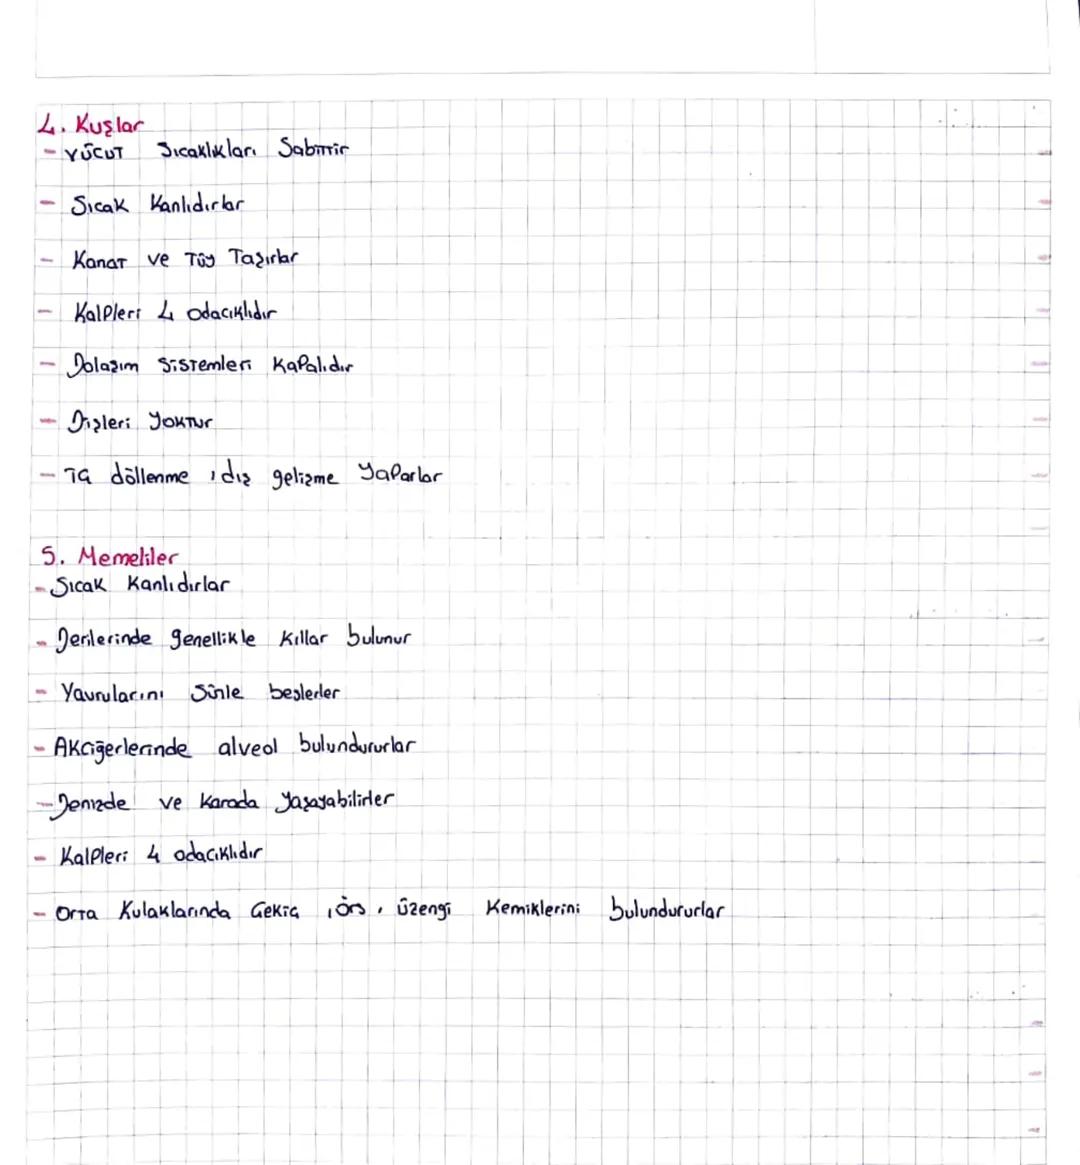 4. Kuşlar
- Vücut Sıcaklıkları Sabittir
- Sıcak Kanlıdırlar
- Kanat ve Tüy Taşırlar
- Kalpleri 4 odacıklıdır
- Dolaşım Sistemleri Kapalıdır
- Dişleri Yoktur
- İç döllenme, dış gelişme Yaparlar
5. Memeliler
- Sıcak Kanlıdırlar
- Derilerinde genellikle Kıllar bulunur
- Yavrularını Sütle beslerler
- Akciğerlerinde alveol bulundururlar
- Denizde ve Karada Yaşayabilirler
- Kalpleri 4 odacıklıdır
- Orta Kulaklarında Çekiç, Örs, üzengi Kemiklerini bulundururlar